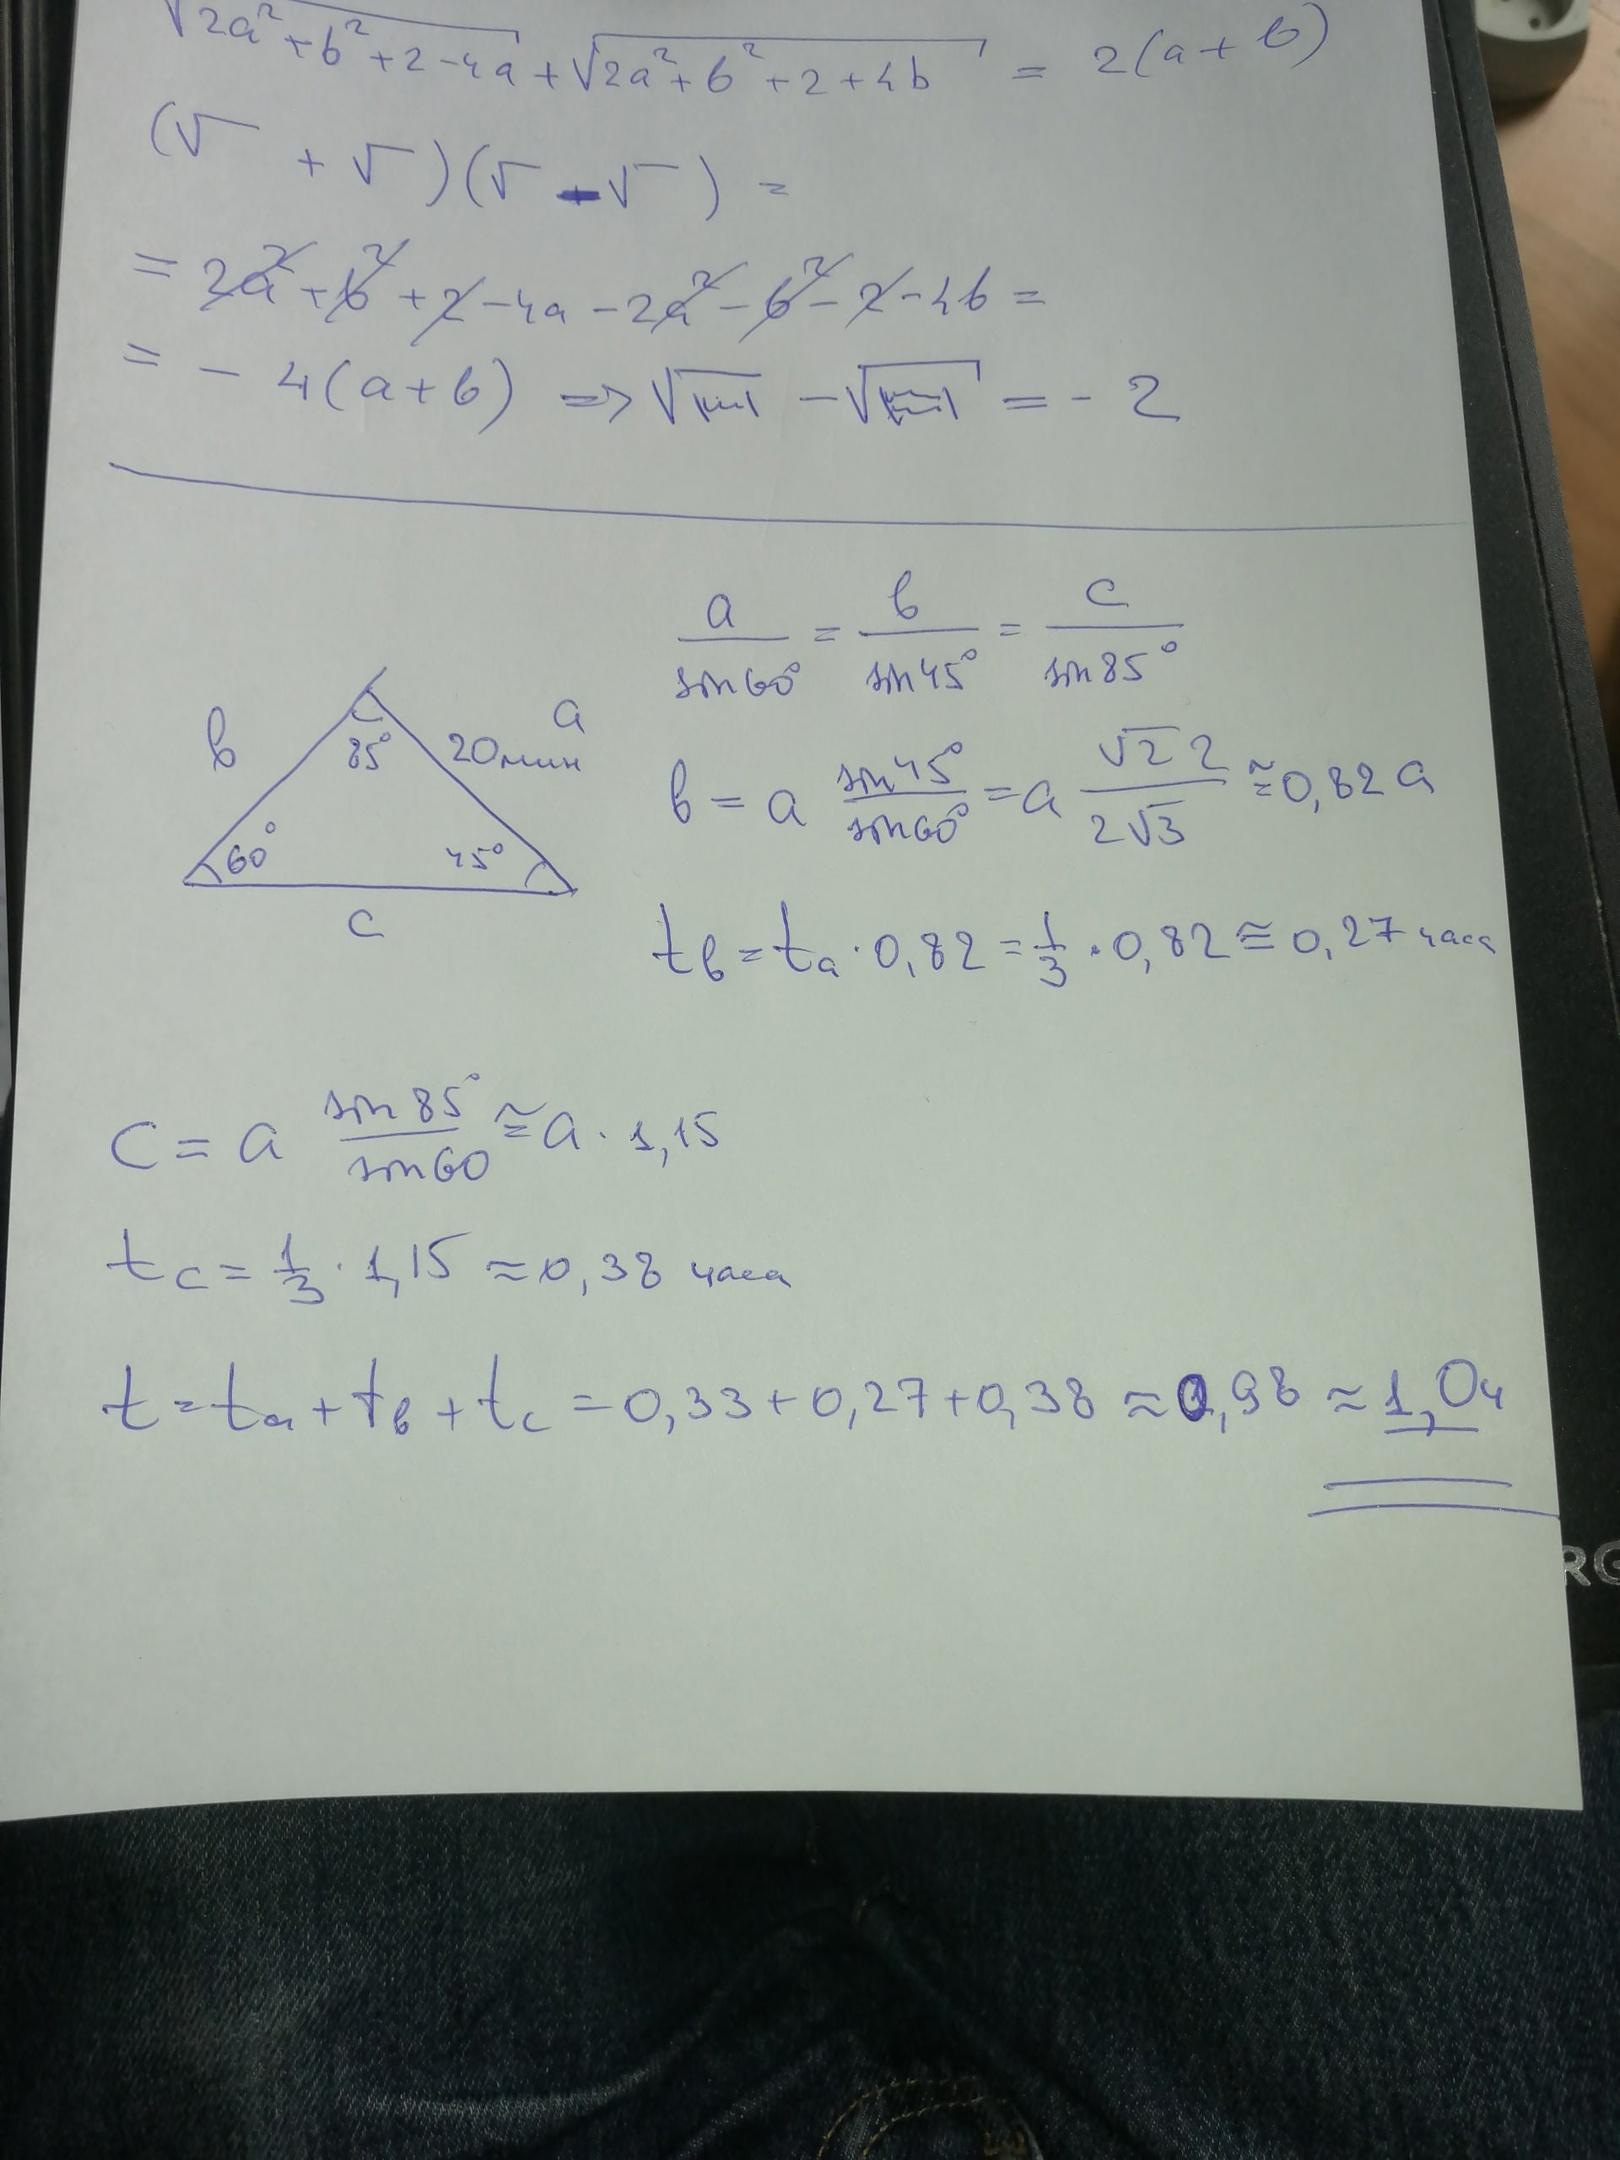 √2a²+b²+2-4a + √2a²+b²+2+4b = 2(a+b)
(√ + √)(√ - √) =
= 2a²+b²+2-4a-2a²-b²-2-4b =
= -4(a+b) => √ - √ = -2
a/sin60° = b/sin45° = c/sin85°
b
a
85°
20мин
60°
45°
c
b = a sin45°/sin60° = a √2 2/2√3 ≅ 0,82 a
tb = ta · 0,82 = 1/3 · 0,82 ≅ 0,27 часа
c = a sin85°/sin60 ≅ a · 1,15
tc = 1/3 · 1,15 ≈ 0,38 часа
t = ta + tb + tc = 0,33+0,27+0,38 ≈ 0,98 ≈ 1,0ч
RG